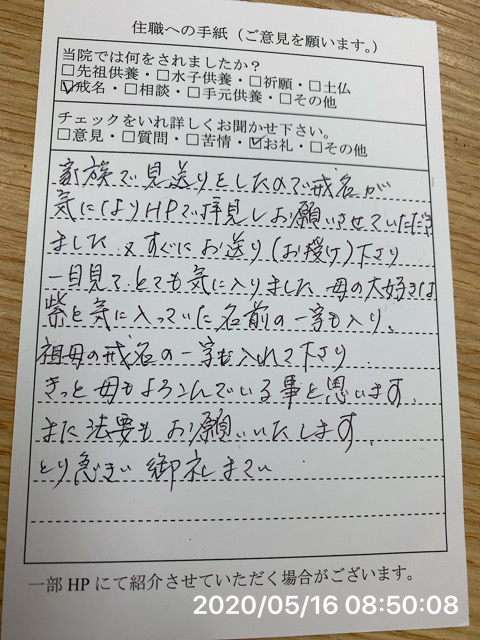 住職への手紙（ご意見を願います。）
当院では何をされましたか？
□先祖供養・□水子供養・□祈願・□土仏
☑戒名・□相談・□手元供養・□その他
チェックをいれ詳しくお聞かせ下さい。
□意見・□質問・□苦情・☑お礼・□その他
家族で見送りをしたので戒名が
気になりHPで拝見しお願いさせていただき
ました。又すぐにお送り(お授け)下さり
一目見て、とても気に入りました。母の大好きな
紫と気に入っていた名前の一字も入り、
祖母の戒名の一字も入れて下さり
きっと母もよろこんでいる事と思います。
また法要もお願いいたします。
とり急ぎ 御礼まで
一部HPにて紹介させていただく場合がございます。
2020/05/16 08:50:08